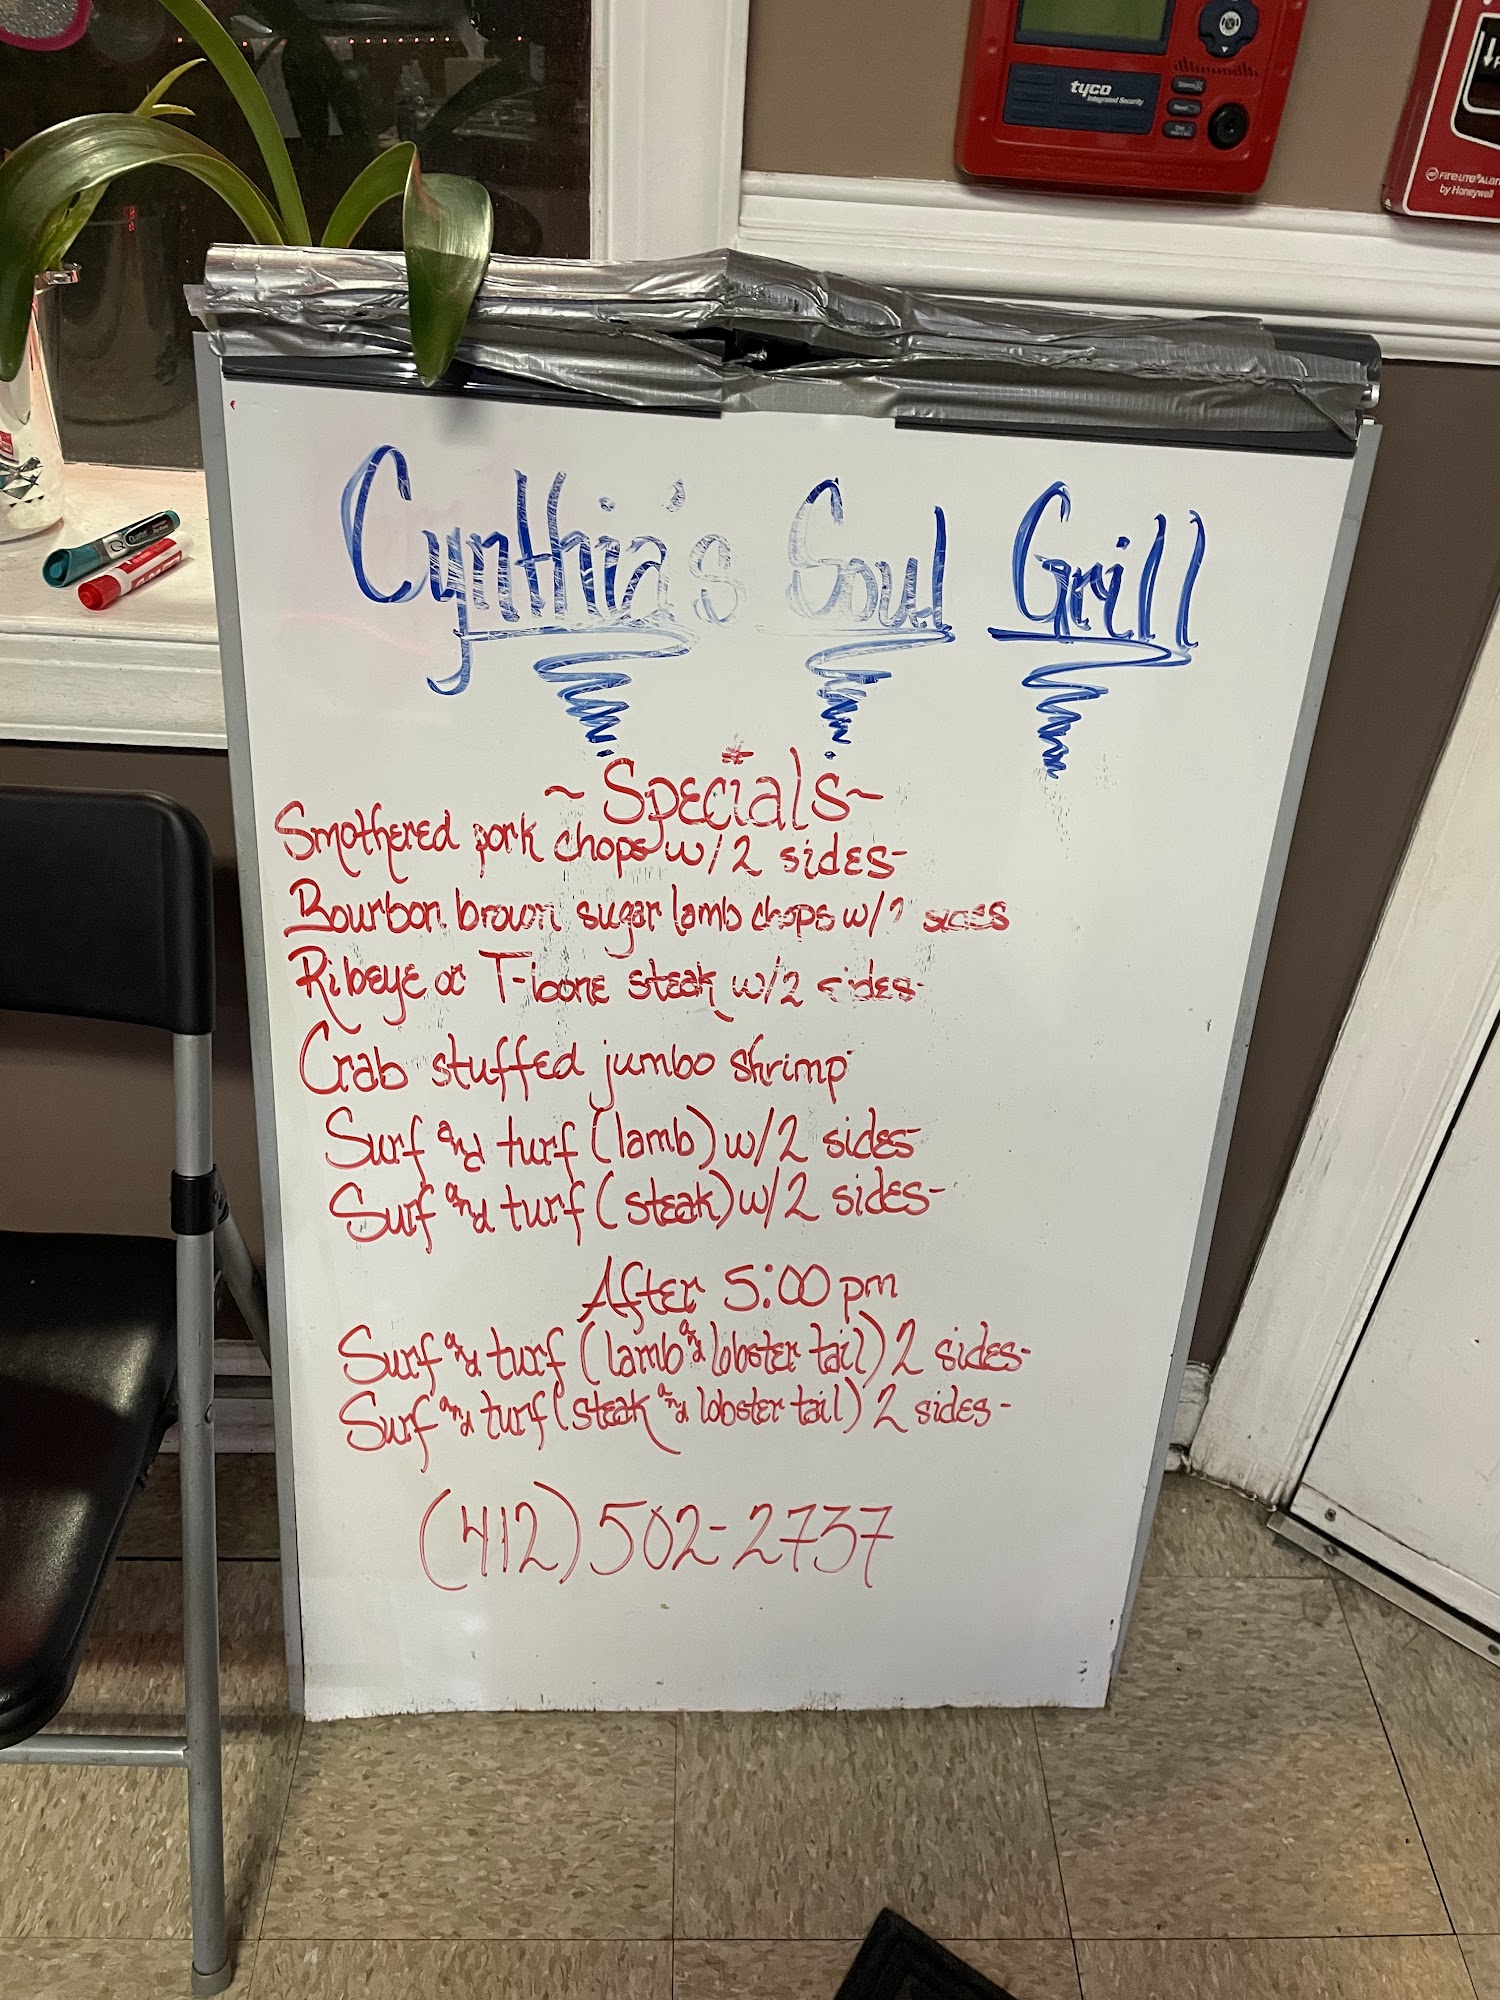 tyco
Integrated Security
FIRE-LITE ALAR
by Honeywell
Cynthia's Soul Grill
~Specials~
Smothered pork chops w/2 sides-
Bourbon brown sugar lamb chops w/2 sides
Ribeye or T-bone steak w/2 sides-
Crab stuffed jumbo shrimp-
Surf and turf (lamb) w/2 sides-
Surf and turf (steak) w/2 sides-
After 5:00pm
Surf and turf (lamb and lobster tail) 2 sides-
Surf and turf (steak and lobster tail) 2 sides-
(412) 502-2737